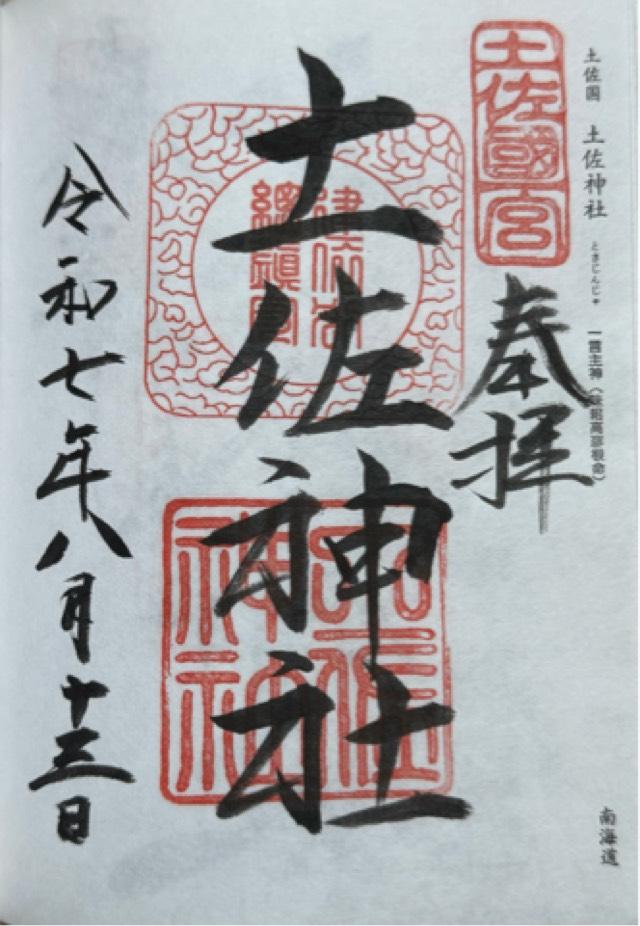 土佐国 土佐神社 とさじんじゃ 一言主神(味鋤高彦根命)
南海道
土佐國一宮
奉拝
土佐神社
土佐神社
令和七年八月十三日